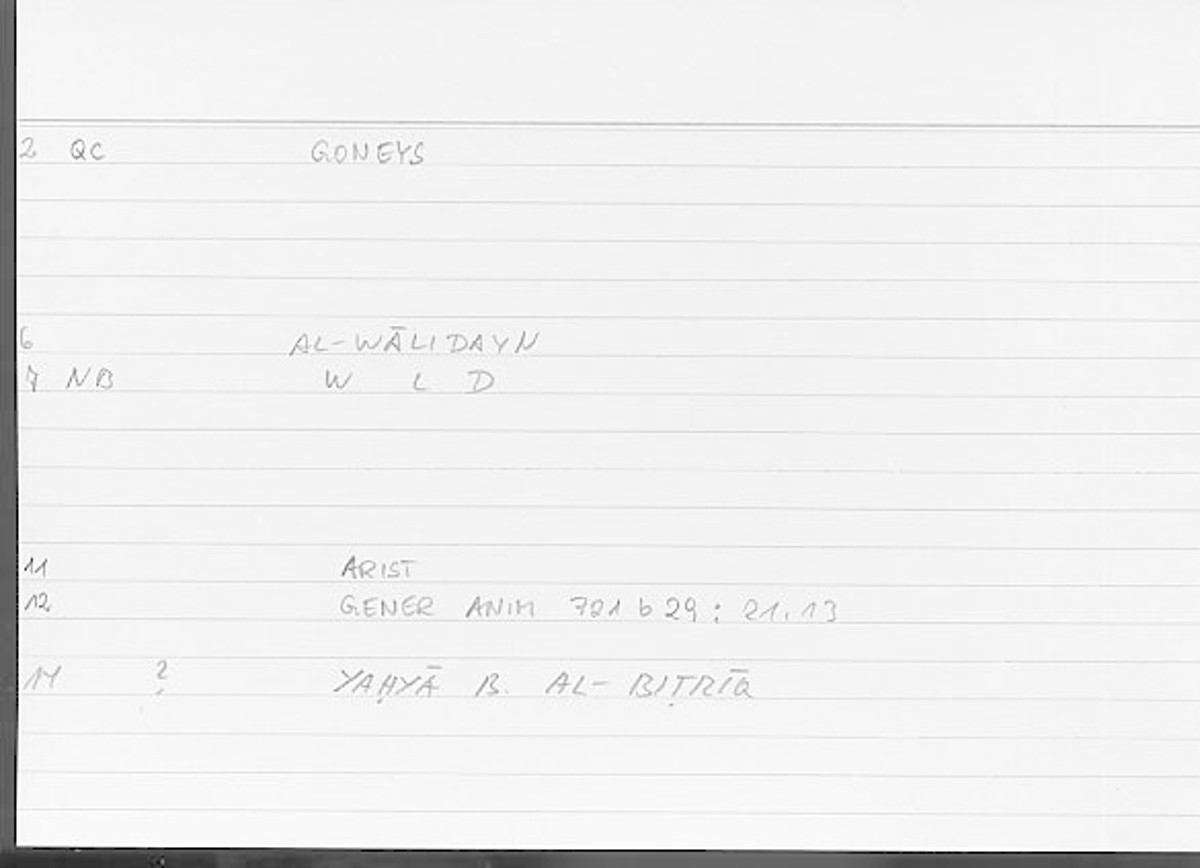 2 QC GONEYS
6 AL-WĀLIDAYN
7 NB W L D
11 ARIST
12 GENER ANIM 721 b 29 : 21.13
14 ? YAḤYĀ B. AL-BIṬRĪQ